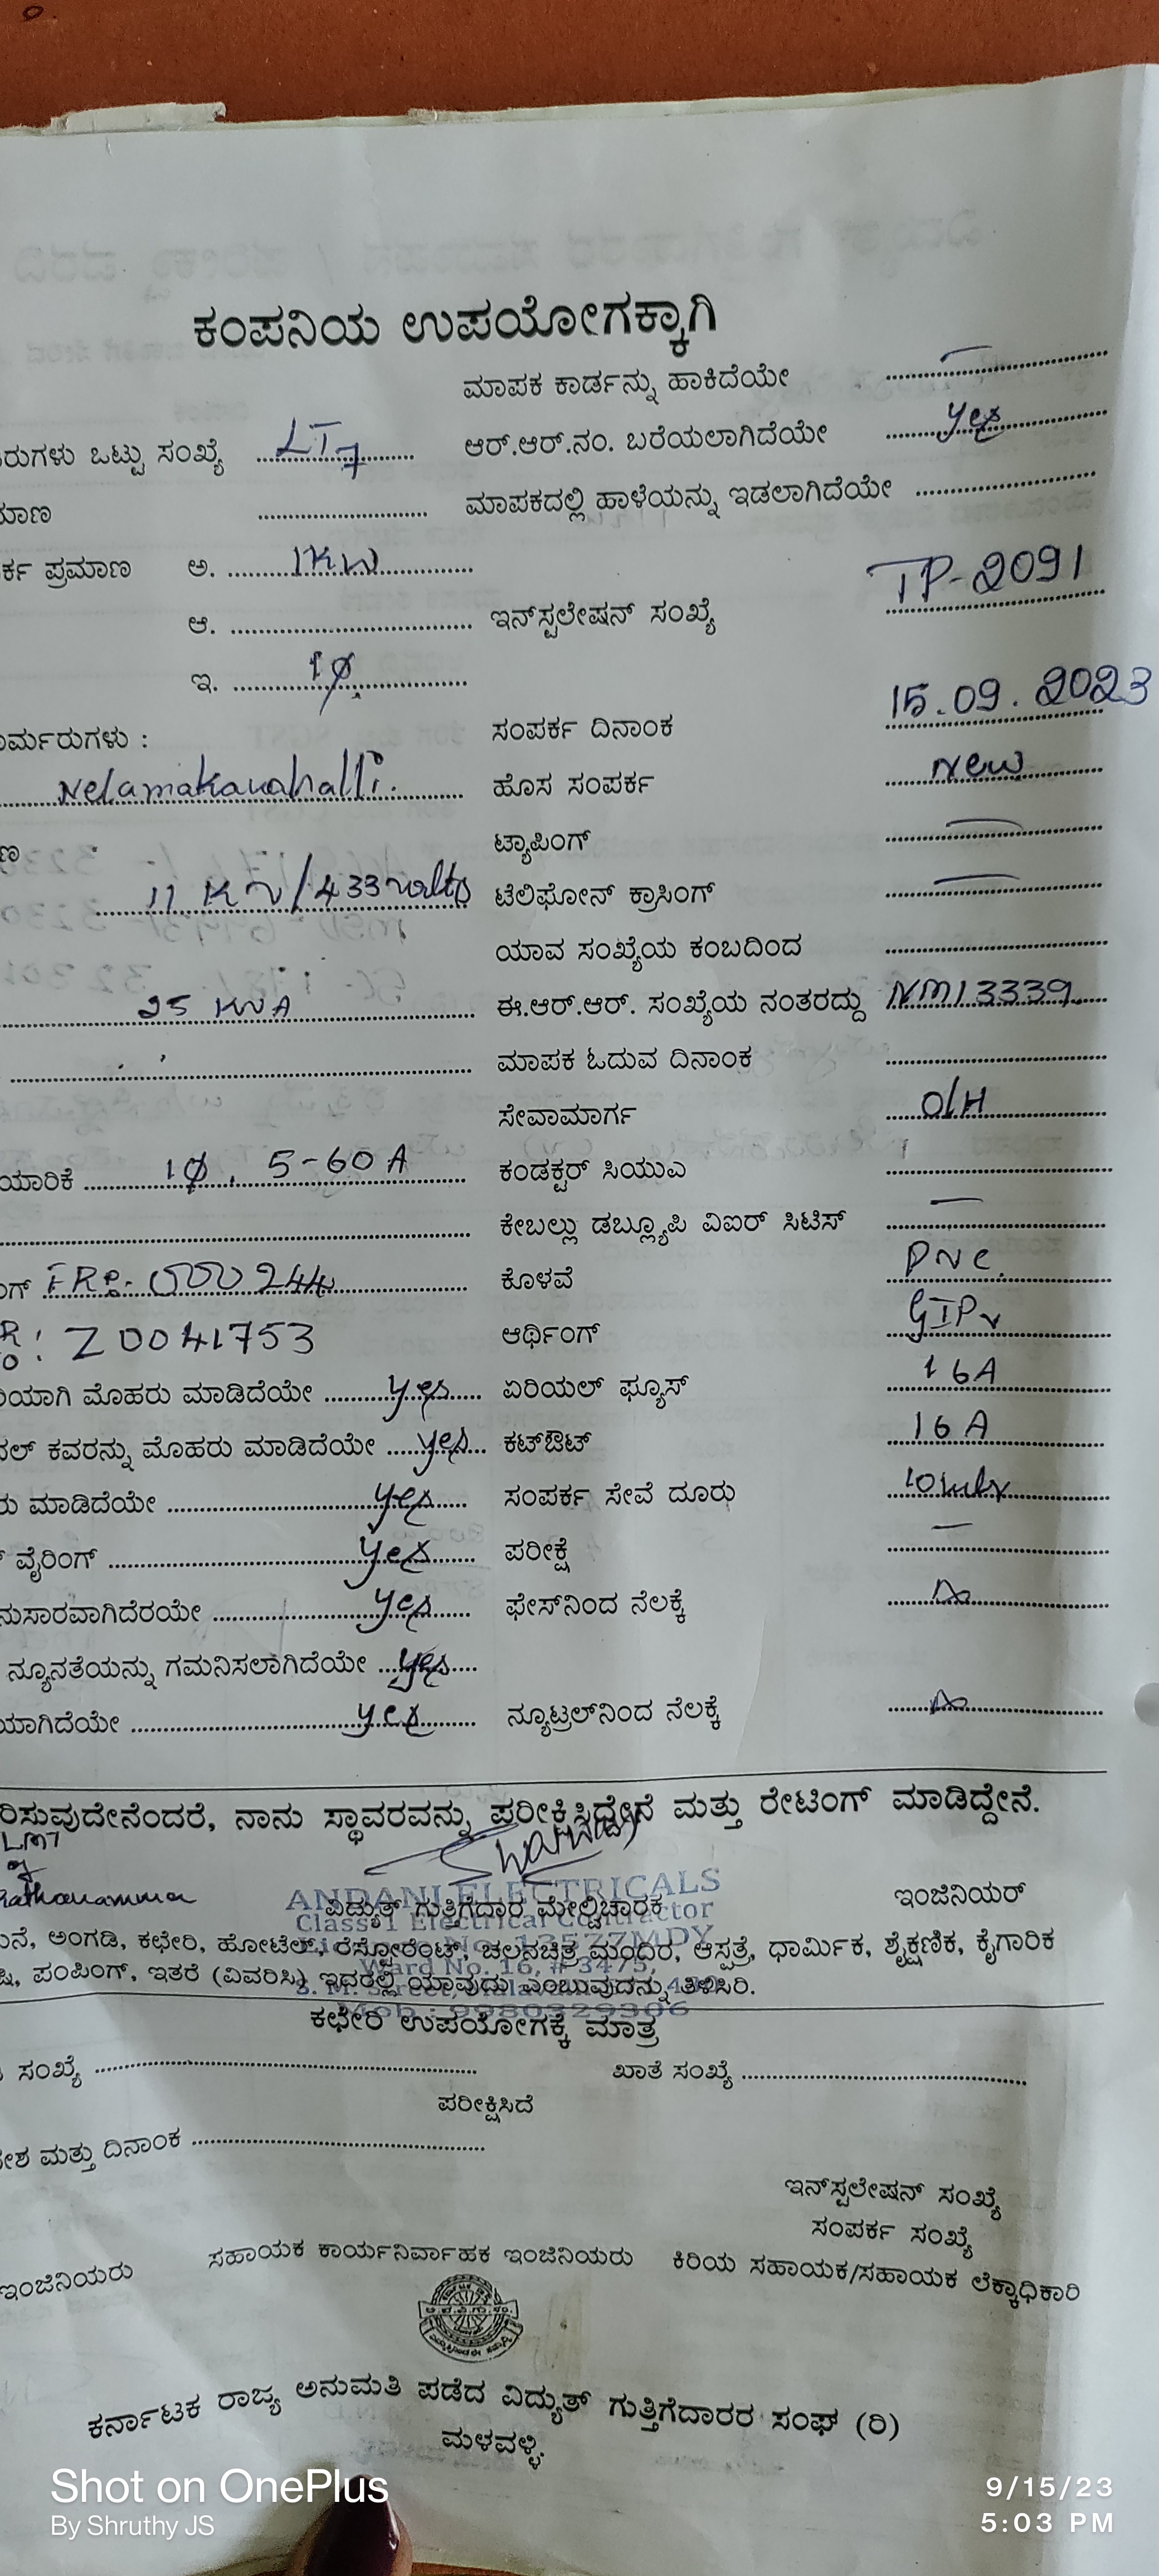 ಕಂಪನಿಯ ಉಪಯೋಗಕ್ಕಾಗಿ
ಮಾಪಕ ಕಾರ್ಡನ್ನು ಹಾಕಿದೆಯೇ
ರುಗಳು ಒಟ್ಟು ಸಂಖ್ಯೆ LT7 ಆರ್.ಆರ್.ನಂ. ಬರೆಯಲಾಗಿದೆಯೇ yes
ಮಾಣ ಮಾಪಕದಲ್ಲಿ ಹಾಳೆಯನ್ನು ಇಡಲಾಗಿದೆಯೇ
ರ್ಕ ಪ್ರಮಾಣ ಅ. 1KW
ಆ. ಇನ್‌ಸ್ಟಲೇಷನ್ ಸಂಖ್ಯೆ TP-2091
ಇ. 1φ
ರ್ಮರುಗಳು : ಸಂಪರ್ಕ ದಿನಾಂಕ 15.09.2023
Nelamakanahalli. ಹೊಸ ಸಂಪರ್ಕ New
ಣ ಟ್ಯಾಪಿಂಗ್
11 KV/433volts ಟೆಲಿಫೋನ್ ಕ್ರಾಸಿಂಗ್
ಯಾವ ಸಂಖ್ಯೆಯ ಕಂಬದಿಂದ
25 KVA ಈ.ಆರ್.ಆರ್. ಸಂಖ್ಯೆಯ ನಂತರದ್ದು NM13339
ಮಾಪಕ ಓದುವ ದಿನಾಂಕ
ಸೇವಾಮಾರ್ಗ O/H
ಯಾರಿಕೆ 1φ, 5-60A ಕಂಡಕ್ಟರ್ ಸಿಯುಎ
ಕೇಬಲ್ಲು ಡಬ್ಲ್ಯೂಪಿ ವಿಐರ್ ಸಿಟಿಸ್
ಂಗ್ 244 ಕೊಳವೆ PNC.
: Z0041753 ಆರ್ಥಿಂಗ್ GIP
ಯಾಗಿ ಮೊಹರು ಮಾಡಿದೆಯೇ yes ಏರಿಯಲ್ ಫ್ಯೂಸ್ 16A
ಲ್ ಕವರನ್ನು ಮೊಹರು ಮಾಡಿದೆಯೇ yes ಕಟ್‌ಔಟ್ 16A
ರು ಮಾಡಿದೆಯೇ yes ಸಂಪರ್ಕ ಸೇವೆ ದೂರು
ವೈರಿಂಗ್ yes ಪರೀಕ್ಷೆ
ನುಸಾರವಾಗಿದೆರಯೇ yes ಫೇಸ್‌ನಿಂದ ನೆಲಕ್ಕೆ
ನ್ಯೂನತೆಯನ್ನು ಗಮನಿಸಲಾಗಿದೆಯೇ yes
ಯಾಗಿದೆಯೇ yes ನ್ಯೂಟ್ರಲ್‌ನಿಂದ ನೆಲಕ್ಕೆ
ರಿಸುವುದೇನೆಂದರೆ, ನಾನು ಸ್ಥಾವರವನ್ನು ಪರೀಕ್ಷಿಸಿದ್ದೇನೆ ಮತ್ತು ರೇಟಿಂಗ್ ಮಾಡಿದ್ದೇನೆ.
ANDANI ELECTRICALS
ವಿದ್ಯುತ್ ಗುತ್ತಿಗೆದಾರ ಮೇಲ್ವಿಚಾರಕ ಇಂಜಿನಿಯರ್
Class-1 Electrical Contractor
ನೆ, ಅಂಗಡಿ, ಕಛೇರಿ, ಹೋಟೆಲ್, ರೆಸ್ಟೋರೆಂಟ್, ಚಲನಚಿತ್ರ ಮಂದಿರ, ಆಸ್ಪತ್ರೆ, ಧಾರ್ಮಿಕ, ಶೈಕ್ಷಣಿಕ, ಕೈಗಾರಿಕ
Ward No. 16, # 3475,
ಪಂಪಿಂಗ್, ಇತರೆ (ವಿವರಿಸಿ) ಇದರಲ್ಲಿ ಯಾವುದು ಎಂಬುವುದನ್ನು ತಿಳಿಸಿರಿ.
Mob : 9980329306
ಕಛೇರಿ ಉಪಯೋಗಕ್ಕೆ ಮಾತ್ರ
ಸಂಖ್ಯೆ ಖಾತೆ ಸಂಖ್ಯೆ
ಪರೀಕ್ಷಿಸಿದೆ
ೇಶ ಮತ್ತು ದಿನಾಂಕ
ಇನ್‌ಸ್ಟಲೇಷನ್ ಸಂಖ್ಯೆ
ಸಂಪರ್ಕ ಸಂಖ್ಯೆ
ಇಂಜಿನಿಯರು ಸಹಾಯಕ ಕಾರ್ಯನಿರ್ವಾಹಕ ಇಂಜಿನಿಯರು ಕಿರಿಯ ಸಹಾಯಕ/ಸಹಾಯಕ ಲೆಕ್ಕಾಧಿಕಾರಿ
ಕರ್ನಾಟಕ ರಾಜ್ಯ ಅನುಮತಿ ಪಡೆದ ವಿದ್ಯುತ್ ಗುತ್ತಿಗೆದಾರರ ಸಂಘ (ರಿ)
ಮಳವಳ್ಳಿ.
Shot on OnePlus
By Shruthy JS
9/15/23
5:03 PM